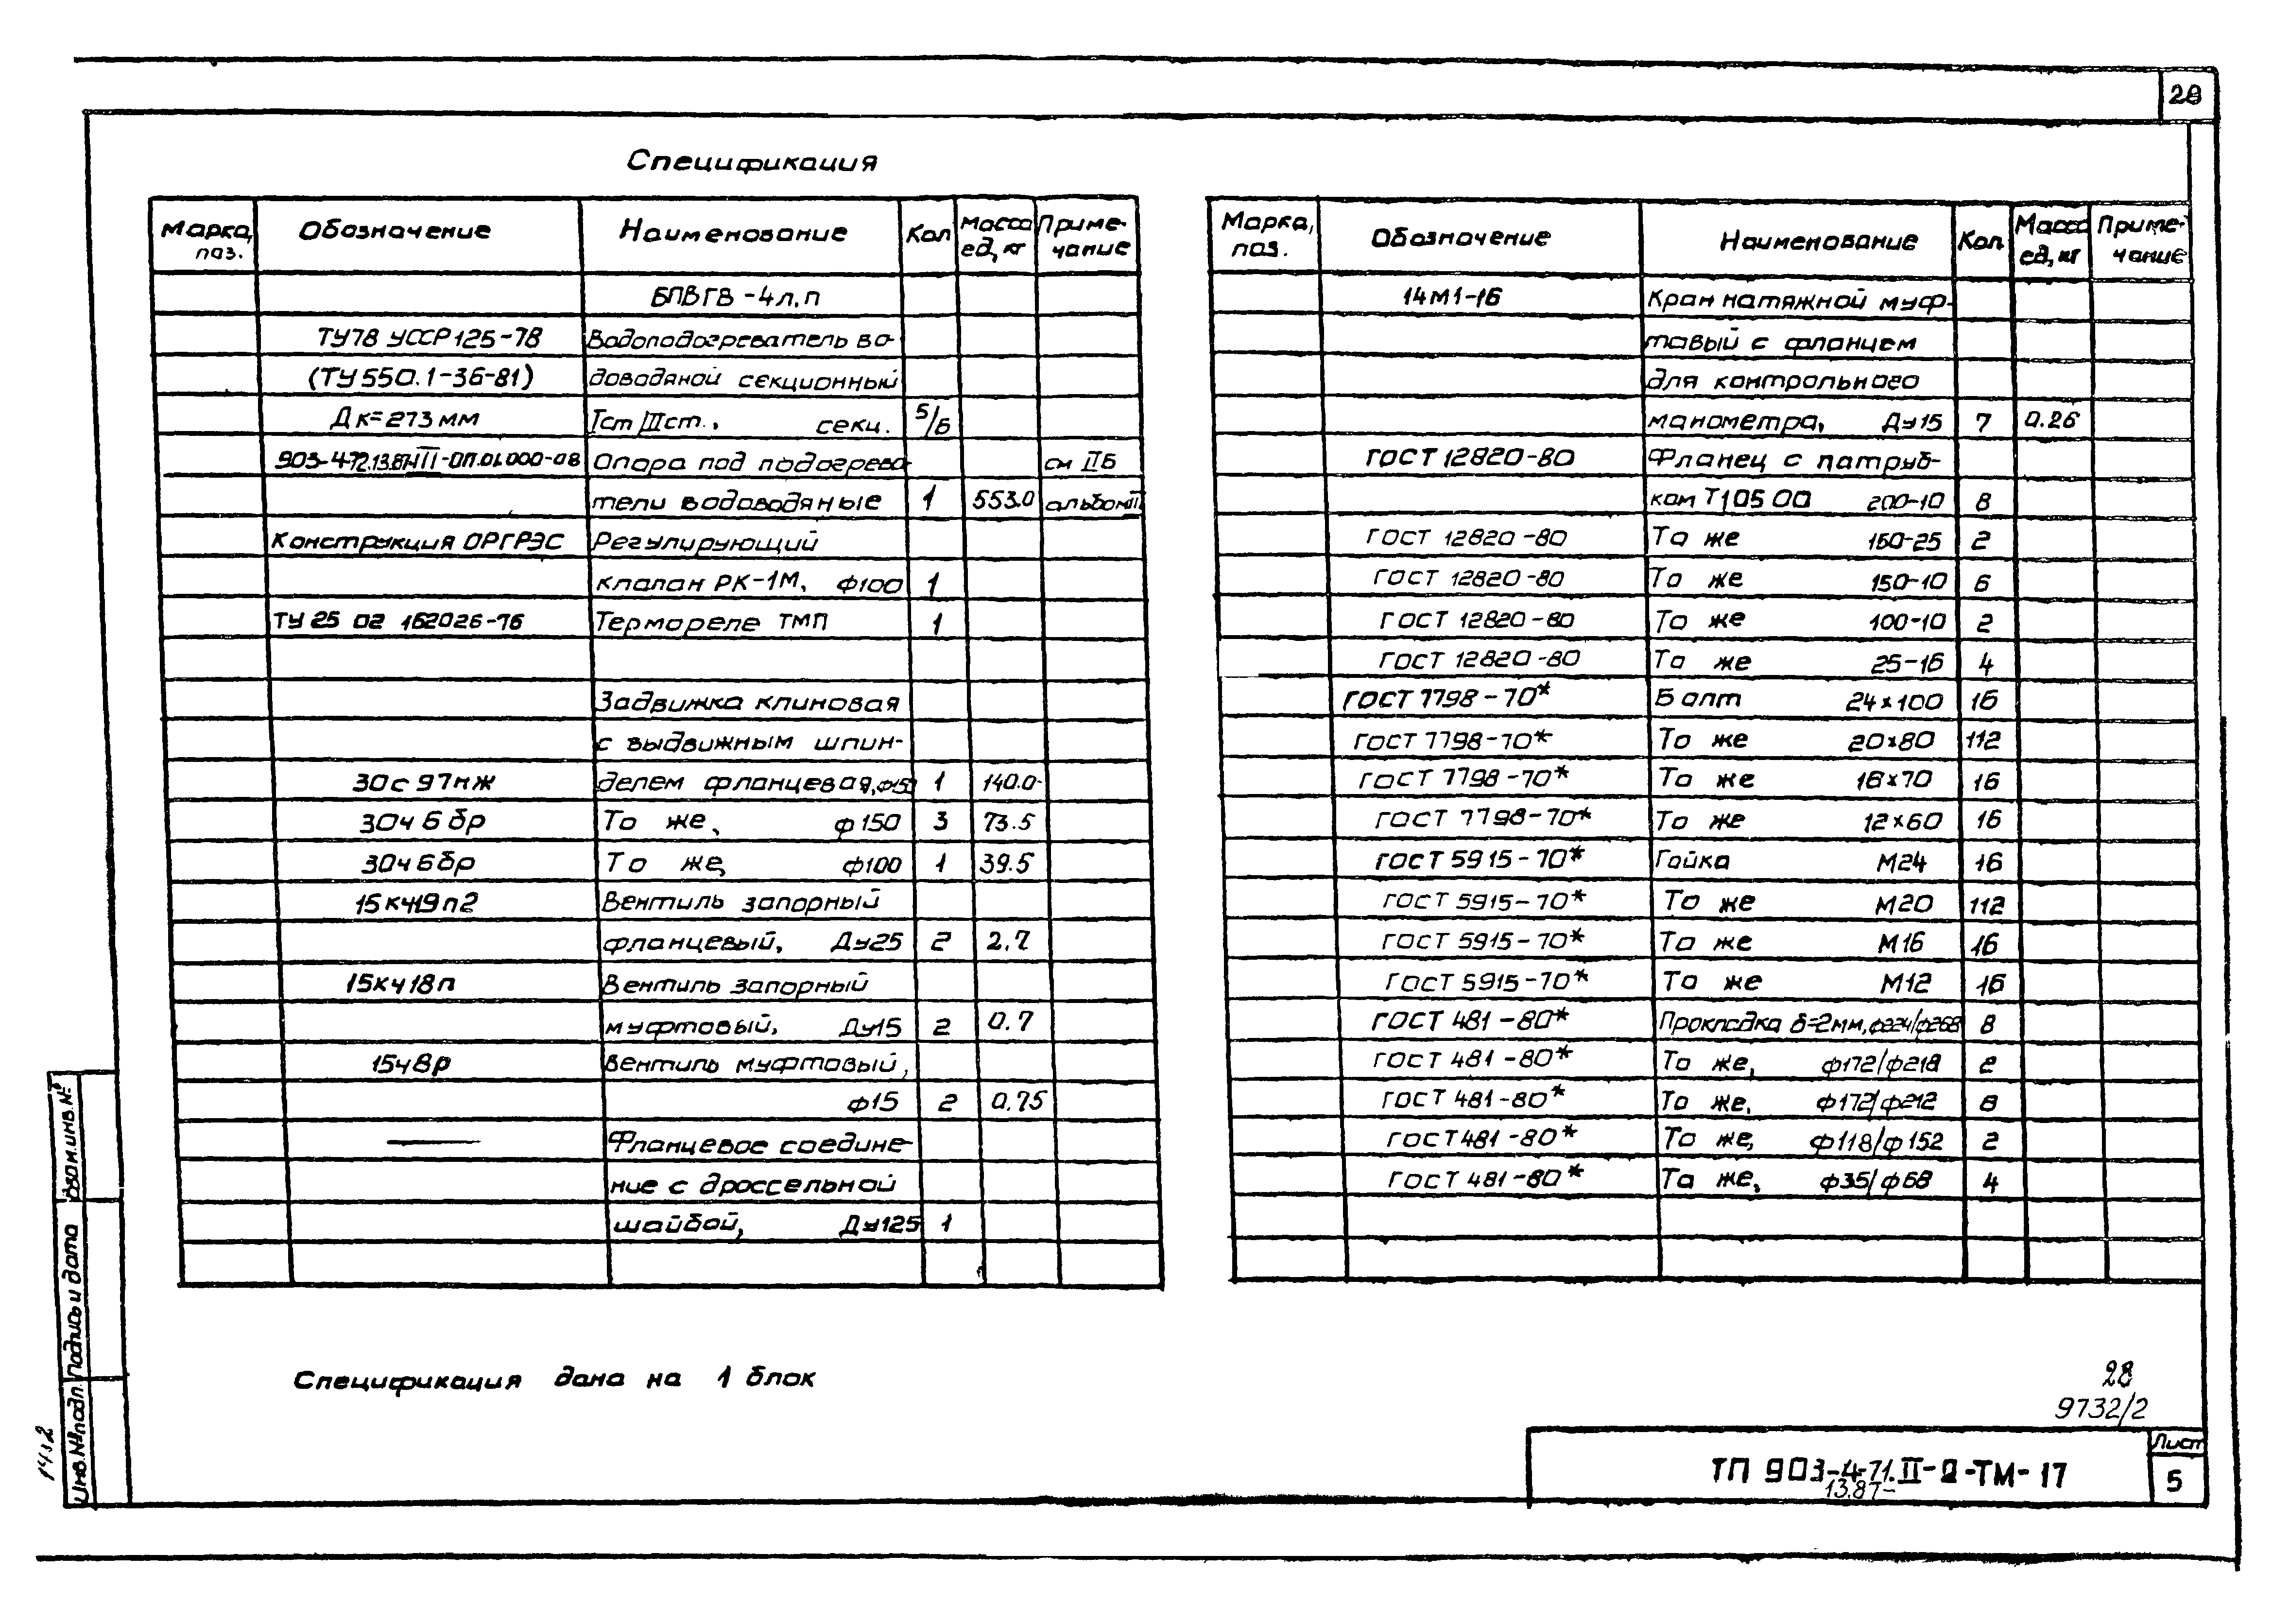 28
Спецификация
Марка, поз. Обозначение Наименование Кол Масса ед, кг Приме-чание
БПВГВ-4л.п
ТУ78 УССР 125-78 Водоподогреватель во-
(ТУ 550.1-36-81) доводяной секционный
Дк=273мм Iст IIIст., секц. 5/6
903-4-72.13.87-III-ОП.01.000-08 Опора под подогрева- см IIБ
тели водоводяные 1 553.0 альбом III
Конструкция ОРГРЭС Регулирующий
клапан РК-1М, ф100 1
ТУ 25 02 162026-76 Термореле ТМП 1
Задвижка клиновая
с выдвижным шпин-
30с97нж делем фланцевая, ф150 1 140.0
30ч6бр То же, ф150 3 73.5
30ч6бр То же, ф100 1 39.5
15кч19п2 Вентиль запорный
фланцевый, Ду25 2 2.7
15кч18п Вентиль запорный
муфтовый, Ду15 2 0.7
15ч8р Вентиль муфтовый,
ф15 2 0.75
— Фланцевое соедине-
ние с дроссельной
шайбой, Ду125 1
Марка, поз. Обозначение Наименование Кол Масса ед, кг Приме-чание
14М1-16 Кран натяжной муф-
товый с фланцем
для контрольного
манометра, Ду15 7 0.26
ГОСТ 12820-80 Фланец с патруб-
ком Т105 00 200-10 8
ГОСТ 12820-80 То же 150-25 2
ГОСТ 12820-80 То же 150-10 6
ГОСТ 12820-80 То же 100-10 2
ГОСТ 12820-80 То же 25-16 4
ГОСТ 7798-70* Болт 24х100 16
ГОСТ 7798-70* То же 20х80 112
ГОСТ 7798-70* То же 16х70 16
ГОСТ 7798-70* То же 12х60 16
ГОСТ 5915-70* Гайка М24 16
ГОСТ 5915-70* То же М20 112
ГОСТ 5915-70* То же М16 16
ГОСТ 5915-70* То же М12 16
ГОСТ 481-80* Прокладка δ=2мм, ф224/ф268 8
ГОСТ 481-80* То же, ф172/ф218 2
ГОСТ 481-80* То же, ф172/ф212 8
ГОСТ 481-80* То же, ф118/ф152 2
ГОСТ 481-80* То же, ф35/ф68 4
Спецификация дана на 1 блок
28
9732/2
ТП 903-4-71.II-2-ТМ-17
13.87-
Лист
5
Взам.инв №
Подпись и дата
Инв.№подл.